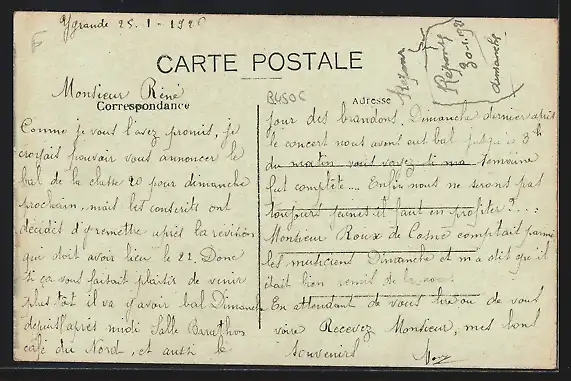 Ygrande 25-1-1920
CARTE POSTALE
Réponse
30.1.920
dimanche
Monsieur Réné
Correspondance
Comme je vous l'avez promis, je
croyais pouvoir vous annoncer le
bal de la classe 20 pour dimanche
prochain, mais les conscrits ont
décidés d'y remettre après la révision
qui doit avoir lieu le 22. Donc
si ça vous faisait plaisir de venir
plus tôt il va y avoir bal Dimanche
depuis l'après midi Salle
café du Nord, et aussi le
B450C
Adresse
jour des brandons. Dimanche dernier après
le concert nous avons eut bal jusque à 3h
du matin vous voyez si ma semaine
fut complète.... Enfin nous ne serons pas
toujours jeunes il faut en profiter?...:
Monsieur Roux de Cosne comptait parmi
les musiciens Dimanche et m'a dit qu'il
était bien remis de
En attendant de vous lire ou de vous
voire Recevez Monsieur, mes bons
souvenirs